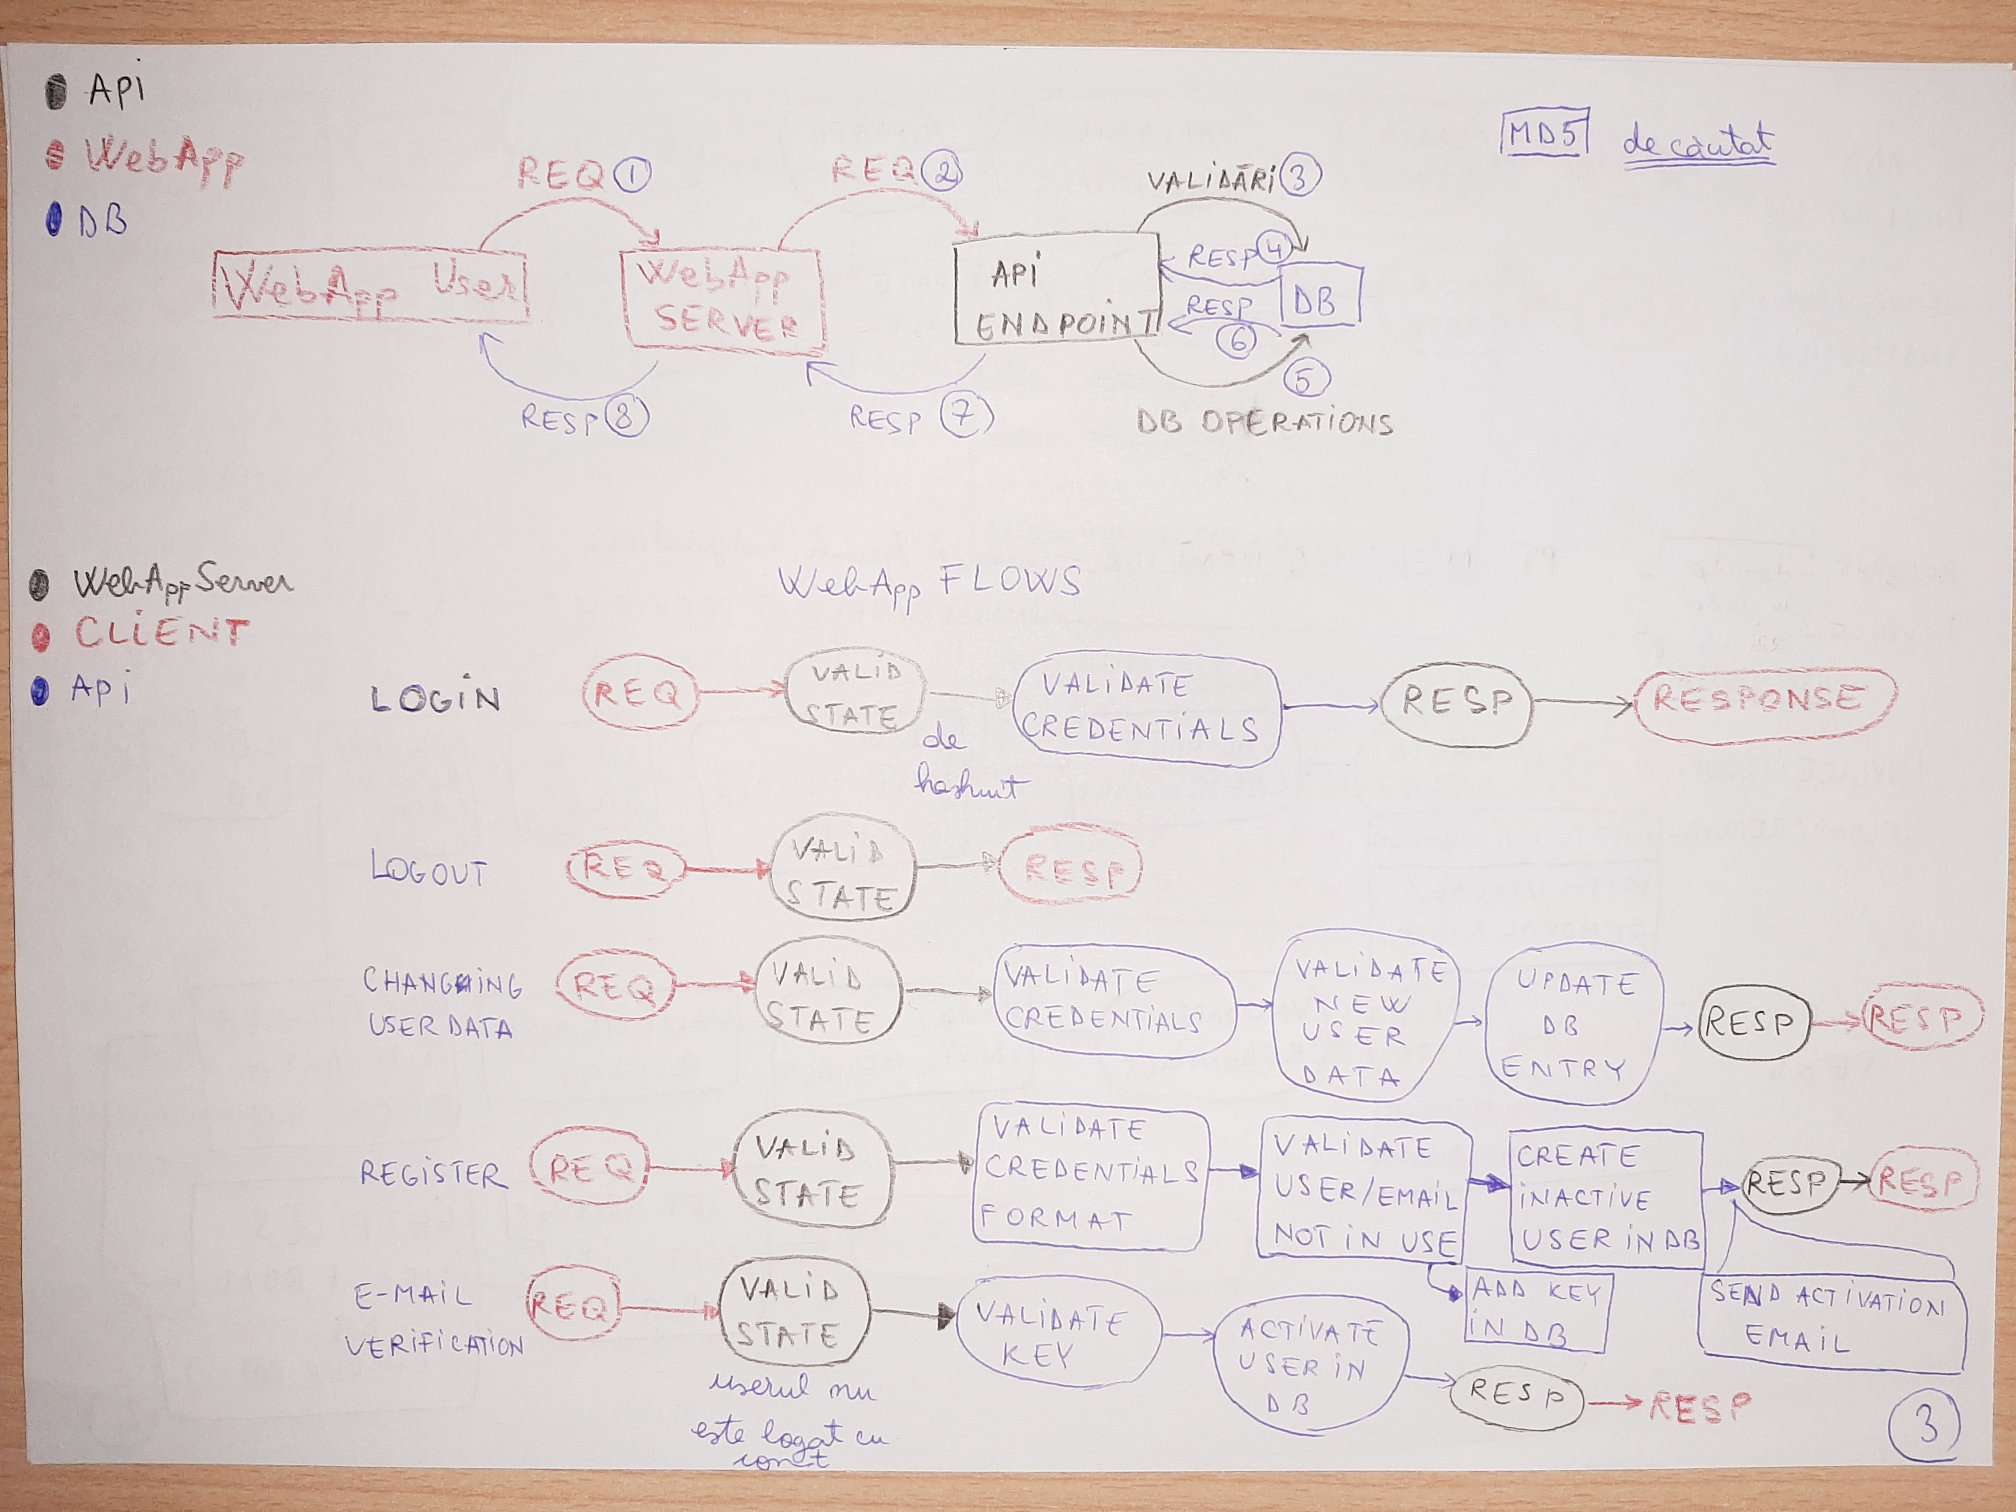 Api
WebApp
DB
MD5 de căutat
REQ 1
REQ 2
VALIDĂRI 3
WebApp User
WebApp
SERVER
APi
ENDPOINT
RESP 4
RESP
6
DB
5
RESP 8
RESP 7
DB OPERATIONS
WebAppServer
CLIENT
Api
WebApp FLOWS
LOGIN
REQ
VALID
STATE
de
hashuit
VALIDATE
CREDENTIALS
RESP
RESPONSE
LOGOUT
REQ
VALID
STATE
RESP
CHANGING
USER DATA
REQ
VALID
STATE
VALIDATE
CREDENTIALS
VALIDATE
NEW
USER
DATA
UPDATE
DB
ENTRY
RESP
RESP
REGISTER
REQ
VALID
STATE
VALIDATE
CREDENTIALS
FORMAT
VALIDATE
USER/EMAIL
NOT IN USE
CREATE
INACTIVE
USER IN DB
RESP
RESP
ADD KEY
IN DB
SEND ACTIVATION
EMAIL
E-MAIL
VERIFICATION
REQ
VALID
STATE
userul nu
este logat cu
cont
VALIDATE
KEY
ACTIVATE
USER IN
DB
RESP
RESP
3